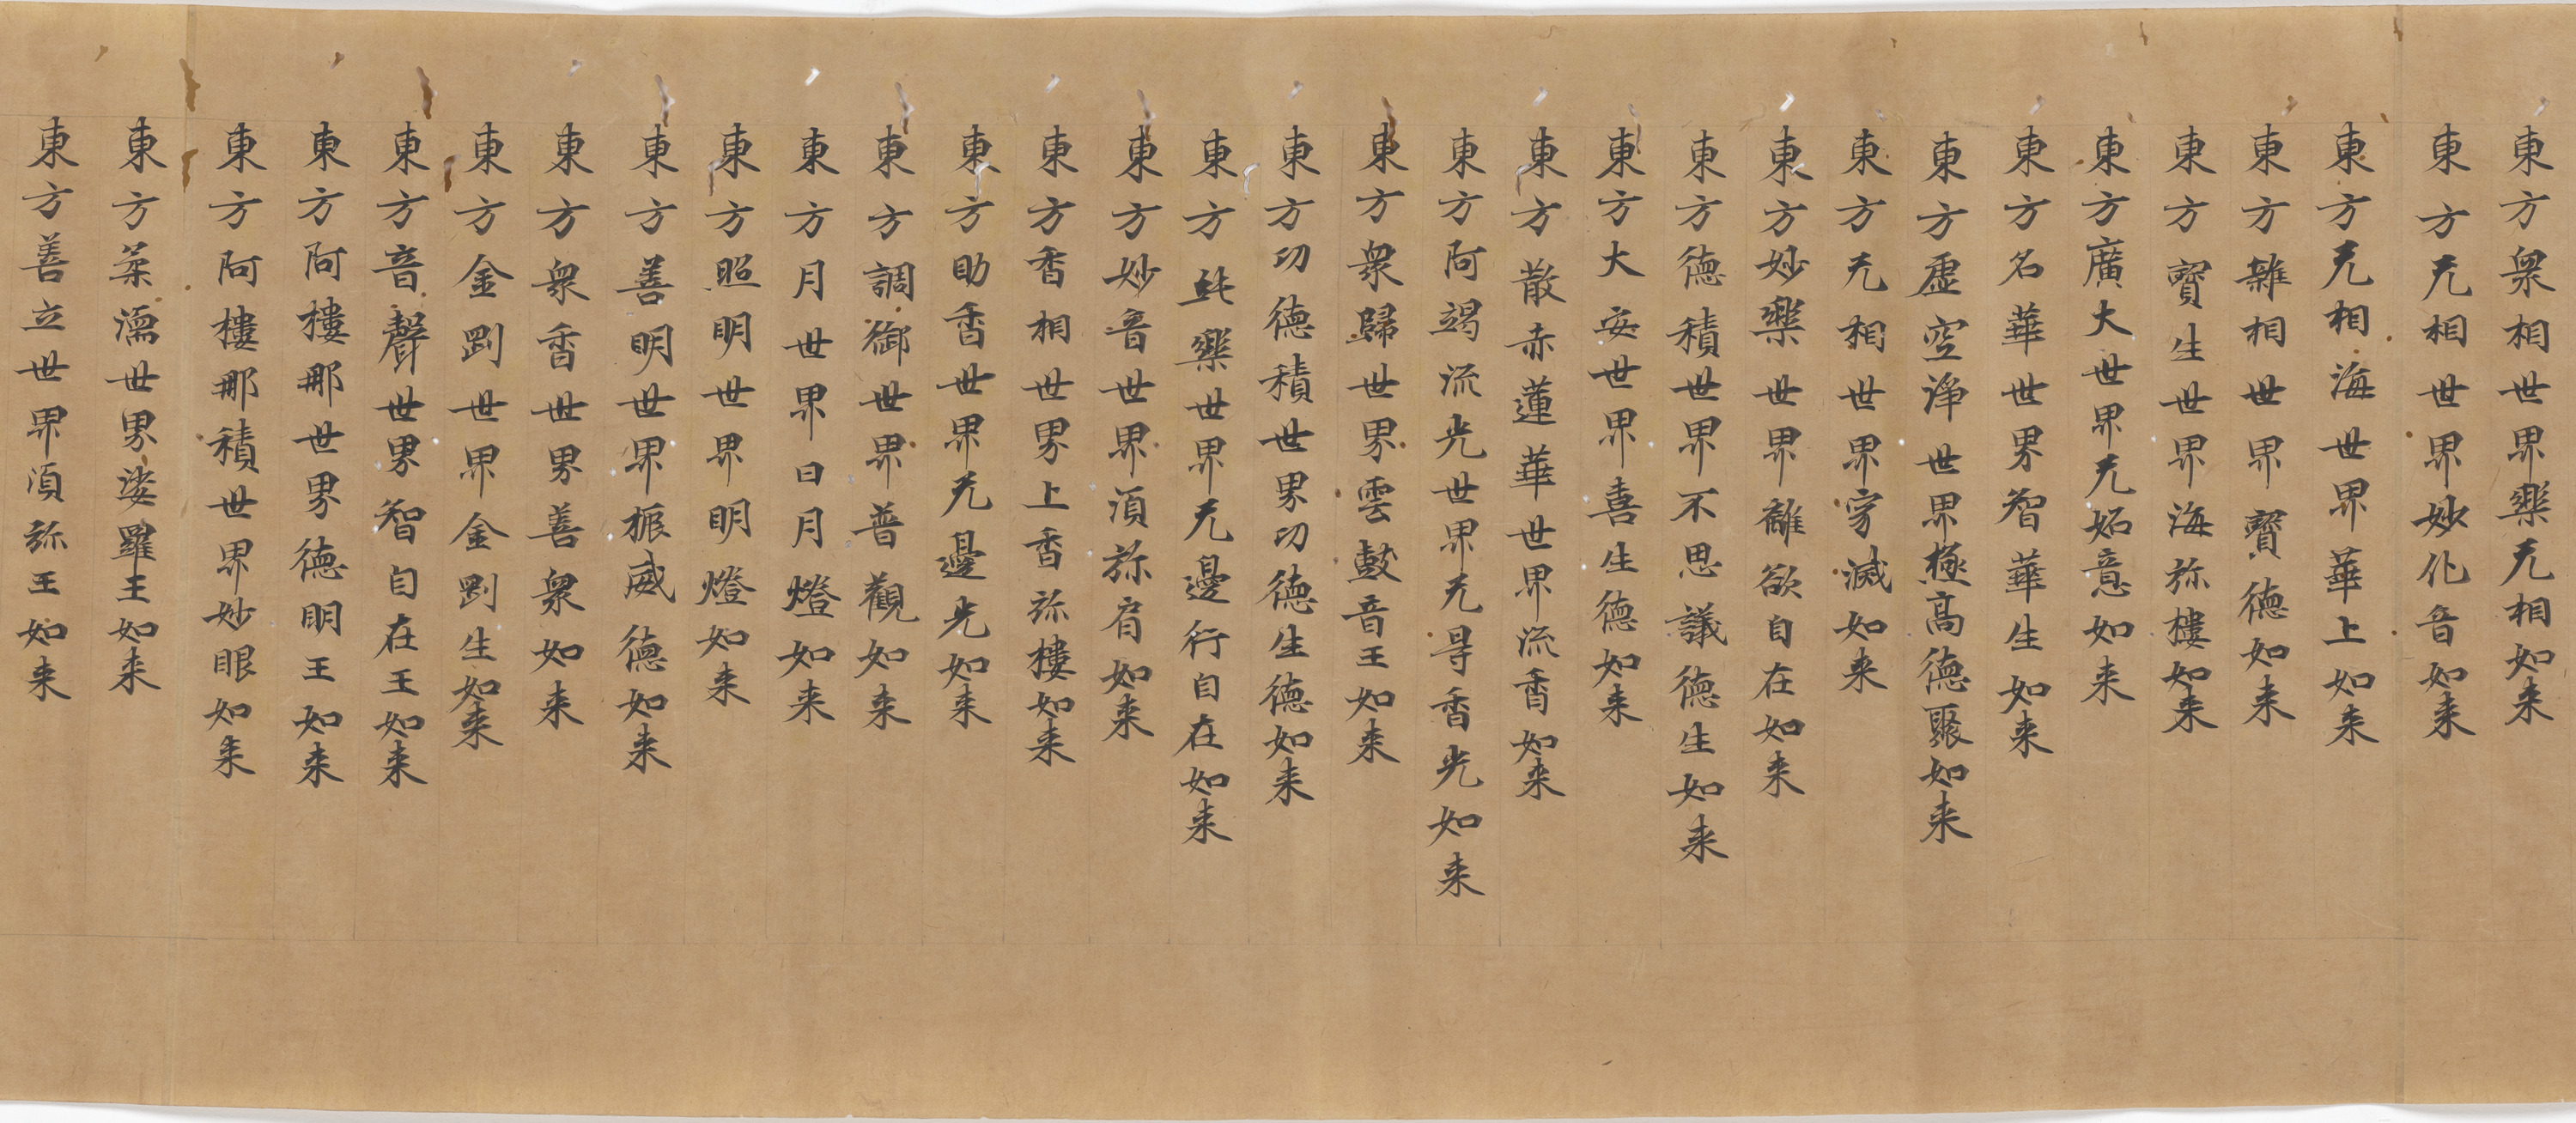 東方衆相世界樂无相如来
東方无相世界妙化音如来
東方无相海世界華上如来
東方雜相世界寶德如来
東方寶生世界海弥樓如来
東方廣大世界无妬意如来
東方名華世界智華生如来
東方虚空浄世界極高德聚如来
東方无相世界寂滅如来
東方妙樂世界離欲自在如来
東方德積世界不思議德生如来
東方大安世界喜生德如来
東方散赤蓮華世界流香如来
東方阿竭流光世界无㝵香光如来
東方衆歸世界雲鼓音王如来
東方功德積世界功德生德如来
東方㲉樂世界无邊行自在如来
東方妙音世界湏弥肩如来
東方香相世界上香弥樓如来
東方助香世界无邊光如来
東方調御世界普觀如来
東方月世界日月燈如来
東方照明世界明燈如来
東方善明世界振威德如来
東方衆香世界善衆如来
東方金剛世界金剛生如来
東方音聲世界智自在王如来
東方阿樓那世界德明王如来
東方阿樓那積世界妙眼如来
東方柔濡世界娑羅王如来
東方善立世界湏弥王如来